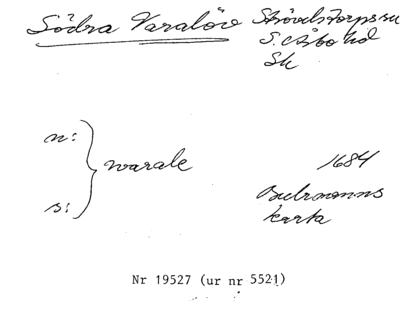 Södra Varalöv Strövelstorps sn
S. Åsbo hd
Sk
n:
warale 1684
s: Buhrmanns
karta
Nr 19527 (ur nr 5521)